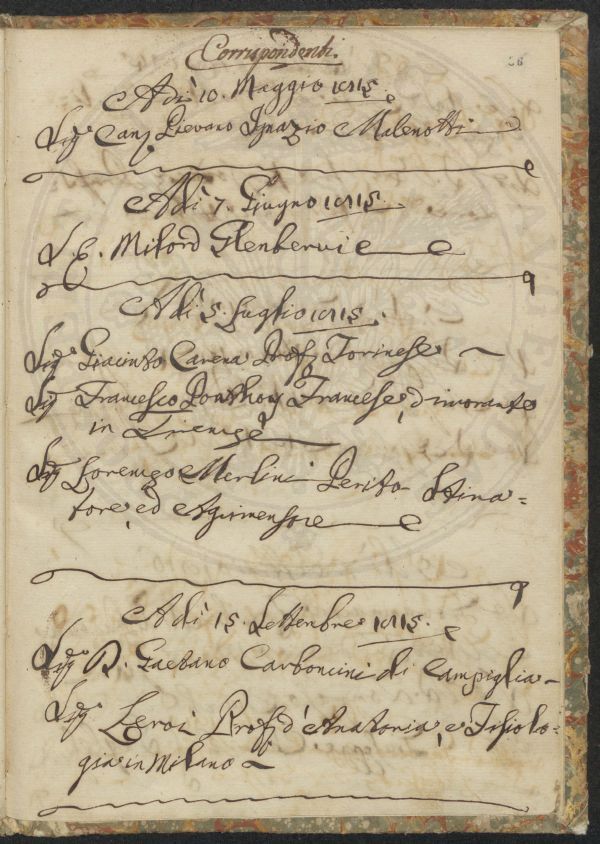 Corrispondenti.
28
Adì 10. Maggio 1815.
Sigr Canco Pievano Ignazio Malenotti
Adì 7. Giugno 1815.
S. E. Milord Glenbervie
Adì 5. Luglio 1815.
Sigr Giacinto Carena Profr Torinese
Sigr Francesco Francese, dimorante
in Firenze
Sigr Lorenzo Merlini Perito Stima=
tore, ed Agrimensore
Adì 15. Settembre 1815.
Sigr D. Gaetano Carboncini di Campiglia
Sigr Leroi Profr d'Anatomia, e Fisiolo=
gia in Milano